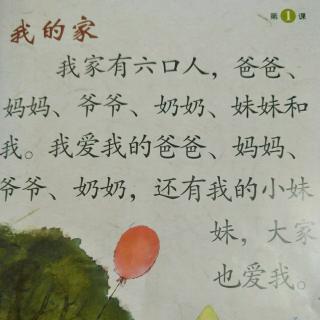 第1课
我的家
我家有六口人，爸爸、
妈妈、爷爷、奶奶、妹妹和
我。我爱我的爸爸、妈妈、
爷爷、奶奶，还有我的小妹
妹，大家
也爱我。